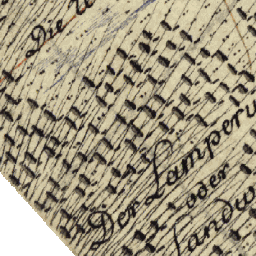 Die
Der Lamper
oder
Landw